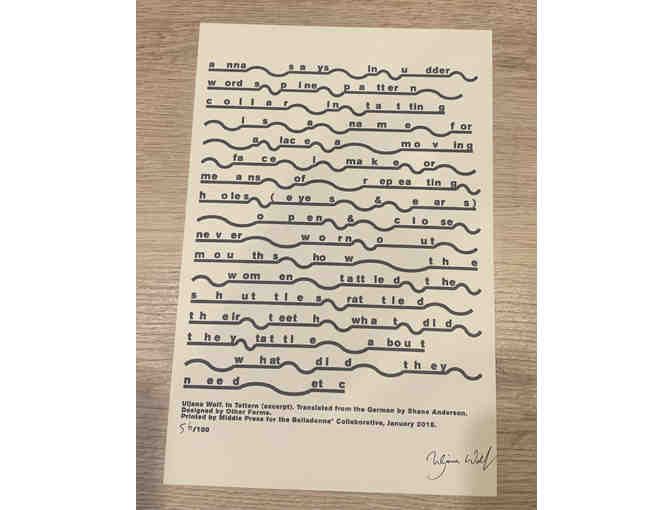 anna says in udder
words pine pattern
collar in tatting
is a name for
a lace a moving
face I make or
means of repeating
holes (eyes & ears)
open & close
never worn out
mouths how the
women tattled the
shuttles rattled
their teeth what did
they tattle about
what did they
need etc
Uljana Wolf. In Tettern (excerpt). Translated from the German by Shane Anderson.
Designed by Other Forms.
Printed by Middle Press for the Belladonna* Collaborative, January 2018.
56/100
Uljana Wolf